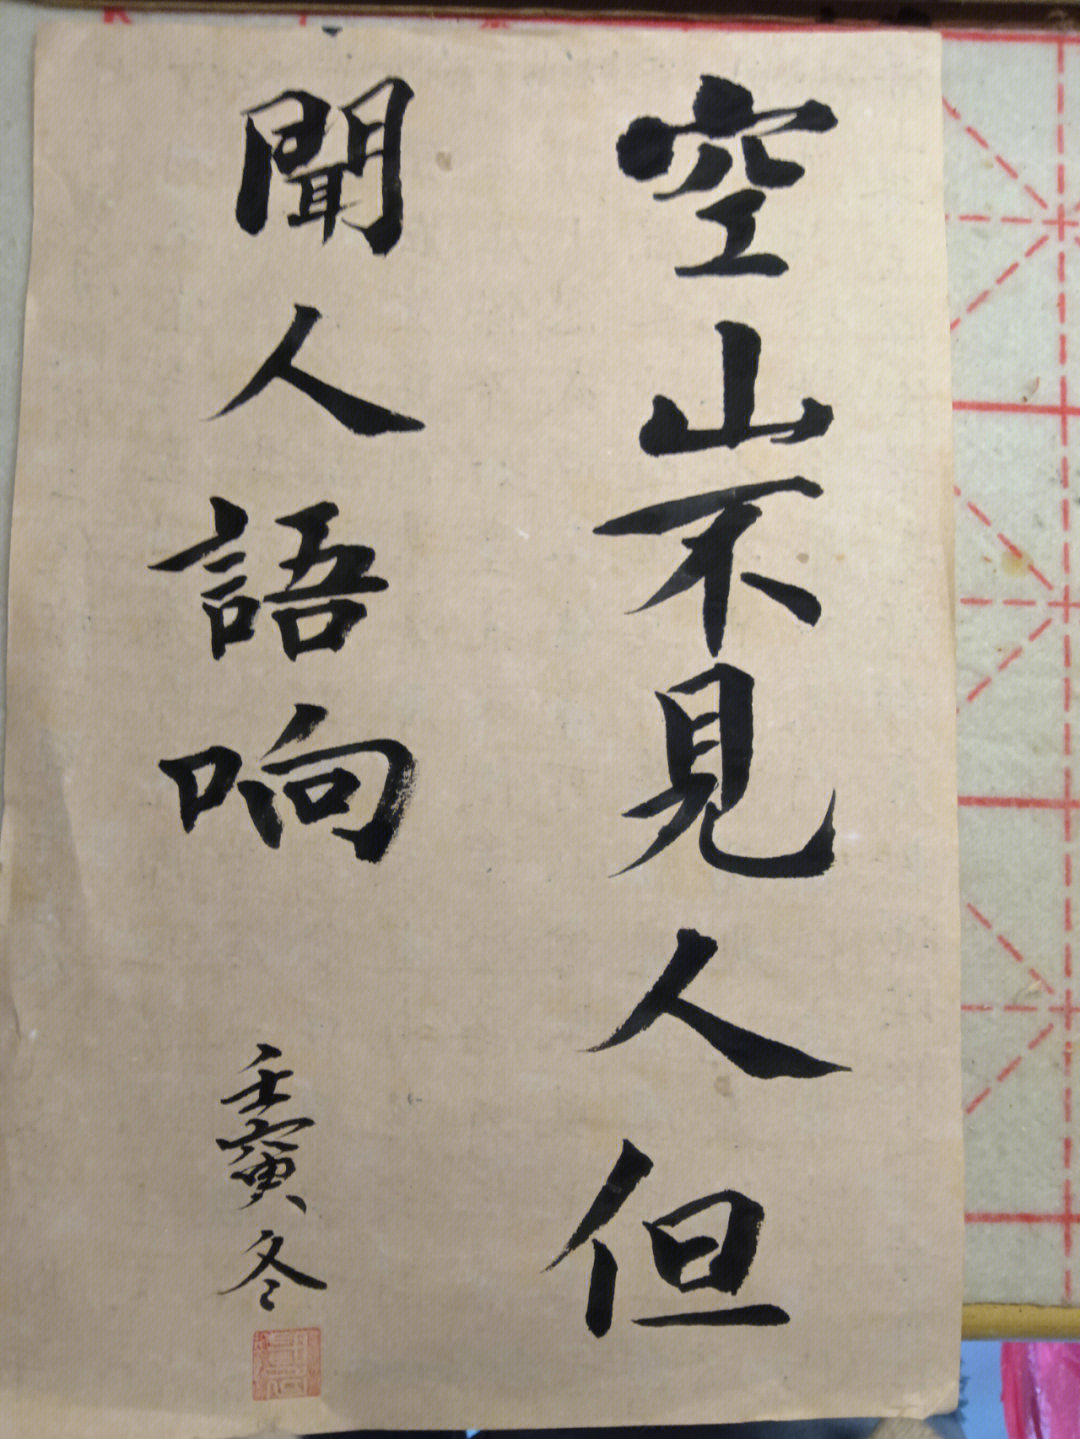 空山不見人但
聞人語响
壬寅冬